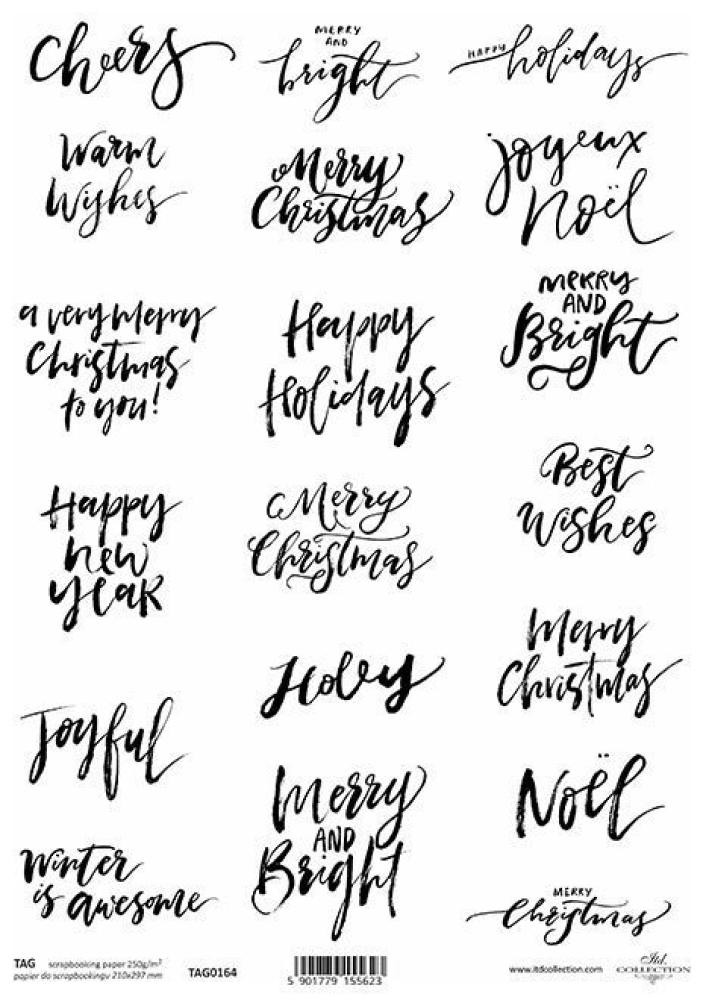 Cheers
MERRY
AND
bright
HAPPY holidays
Warm
Wishes
Merry
Christmas
joyeux
Noël
a very Merry
Christmas
to you!
Happy
Holidays
MERRY
AND
Bright
Happy
new
year
Merry
Christmas
Best
Wishes
Joyful
Holey
Merry
Christmas
Merry
AND
Bright
Noël
Winter
is awesome
MERRY
Christmas
TAG scrapbooking paper 250g/m²
papier do scrapbookingu 210x297 mm
TAG0164
5 901779 155623
www.itdcollection.com
Itd.
COLLECTION